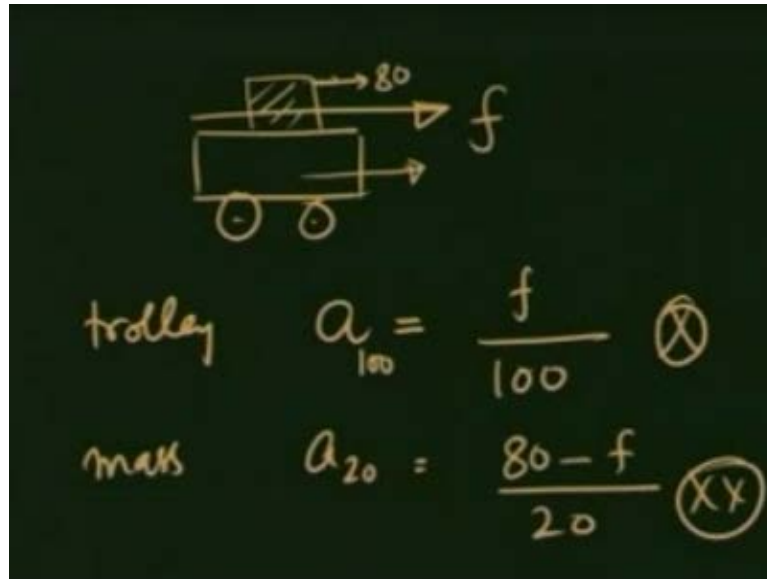 80
f
trolley a100 = f/100 X
mass a20 = 80 - f/20 XX